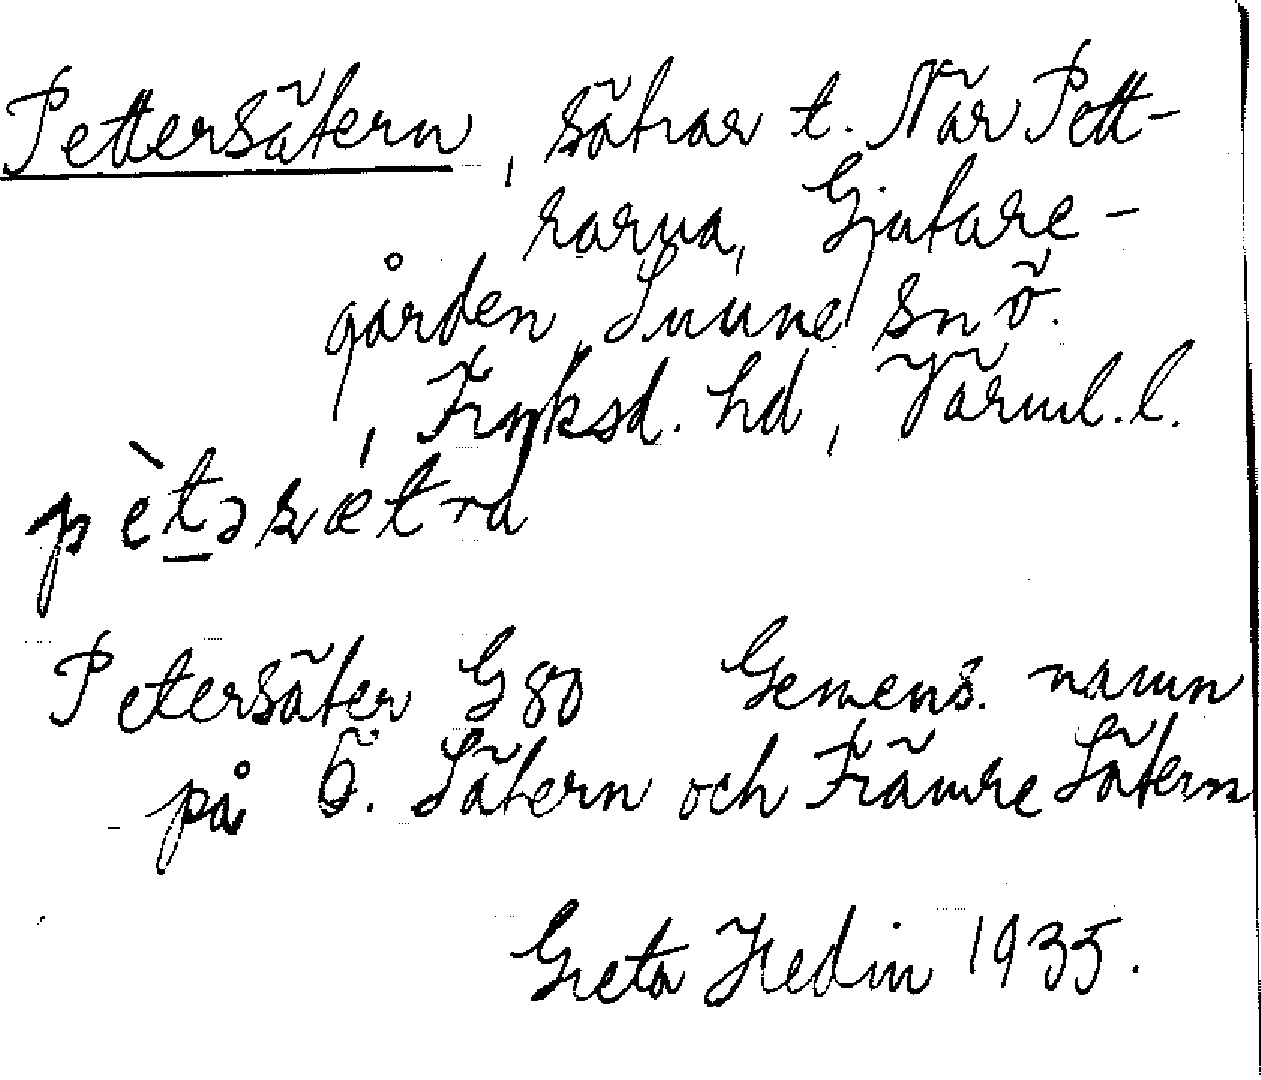 Pettersätern, sätrar t. När Pett-
rarna, Gjutare-
gården, Sunne sn ö.
, Fryksd. hd, Värml. l.
pètəsætra
Petersäter G 80 Gemens. namn
på Ö. Sätern och Främre Sätern
Greta Hedin 1935.